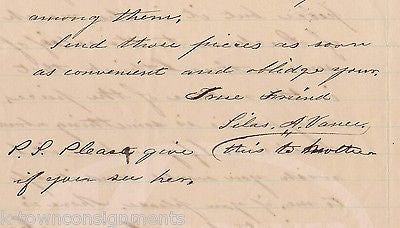 among them.
Send those pieces as soon
as convenient and oblidge your
True Friend
Silas. A. Vance,
P. S. Please give (this to Mother
if you see her.
k-townconsignments